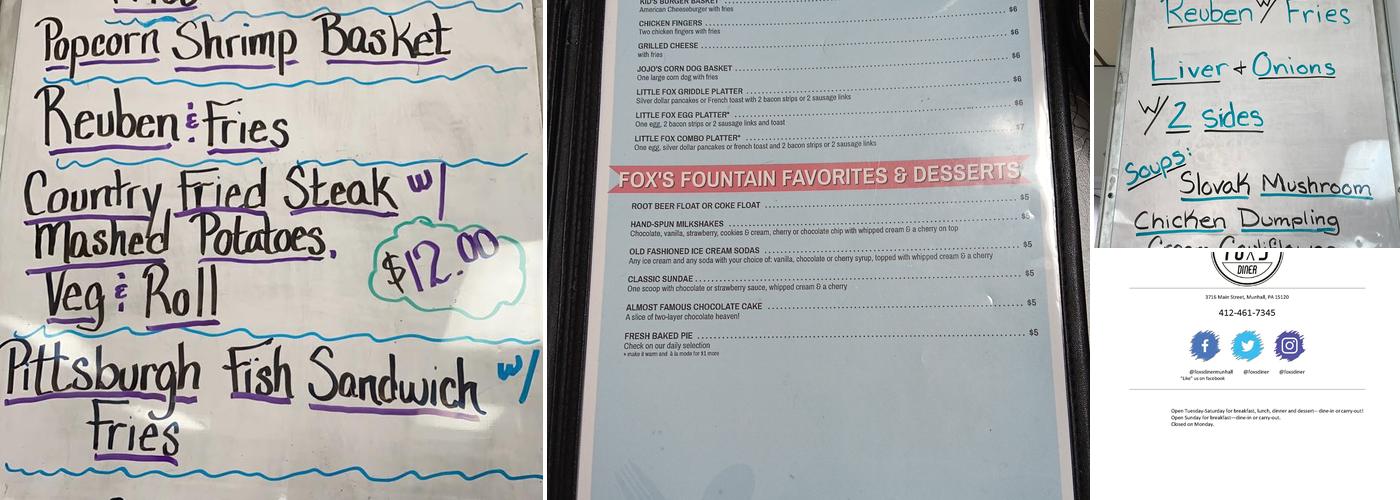 Popcorn Shrimp Basket
Reuben & Fries
Country Fried Steak w/
Mashed Potatoes,
Veg & Roll
$12.00
Pittsburgh Fish Sandwich w/
Fries
KID'S BURGER BASKET
American Cheeseburger with fries
$6
CHICKEN FINGERS
Two chicken fingers with fries
$6
GRILLED CHEESE
with fries
$6
JOJO'S CORN DOG BASKET
One large corn dog with fries
$6
LITTLE FOX GRIDDLE PLATTER
Silver dollar pancakes or French toast with 2 bacon strips or 2 sausage links
$6
LITTLE FOX EGG PLATTER*
One egg, 2 bacon strips or 2 sausage links and toast
$6
LITTLE FOX COMBO PLATTER*
One egg, silver dollar pancakes or french toast and 2 bacon strips or 2 sausage links
$7
FOX'S FOUNTAIN FAVORITES & DESSERTS
ROOT BEER FLOAT OR COKE FLOAT
$5
HAND-SPUN MILKSHAKES
Chocolate, vanilla, strawberry, cookies & cream, cherry or chocolate chip with whipped cream & a cherry on top
$5
OLD FASHIONED ICE CREAM SODAS
Any ice cream and any soda with your choice of: vanilla, chocolate or cherry syrup, topped with whipped cream & a cherry
$5
CLASSIC SUNDAE
One scoop with chocolate or strawberry sauce, whipped cream & a cherry
$5
ALMOST FAMOUS CHOCOLATE CAKE
A slice of two-layer chocolate heaven!
$5
FRESH BAKED PIE
Check on our daily selection
• make it warm and à la mode for $1 more
$5
Reuben w/ Fries
Liver + Onions
w/2 sides
Soups:
Slovak Mushroom
Chicken Dumpling
DINER
3716 Main Street, Munhall, PA 15120
412-461-7345
@foxsdinermunhall @foxsdiner @foxsdiner
"Like" us on facebook
Open Tuesday-Saturday for breakfast, lunch, dinner and dessert-- dine-in or carry-out!
Open Sunday for breakfast--dine-in or carry-out.
Closed on Monday.